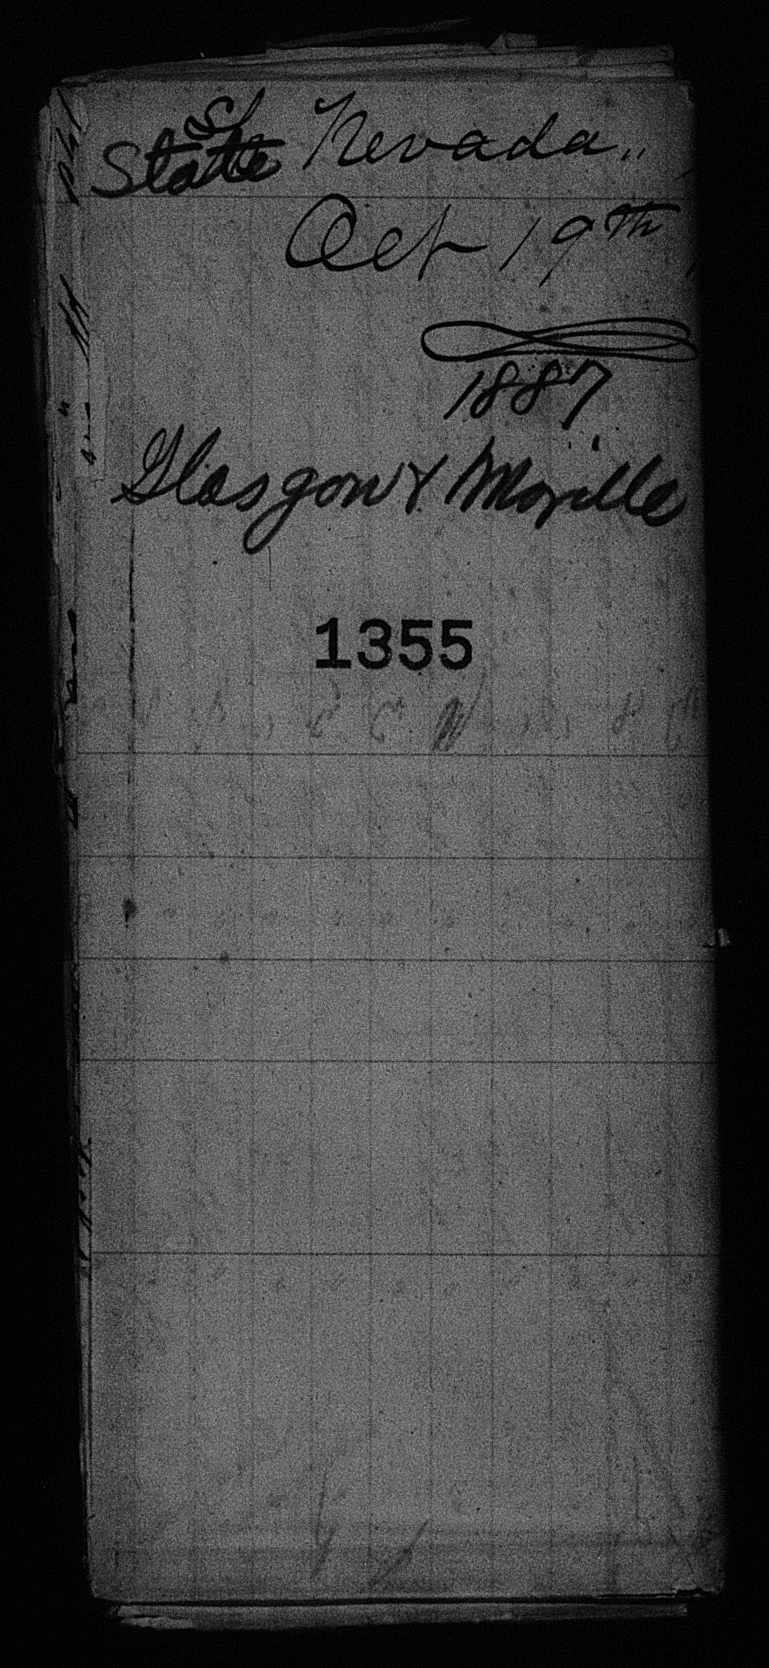 SS
State Nevada,,
Oct 19th
1887
Glasgow & Moville
1355